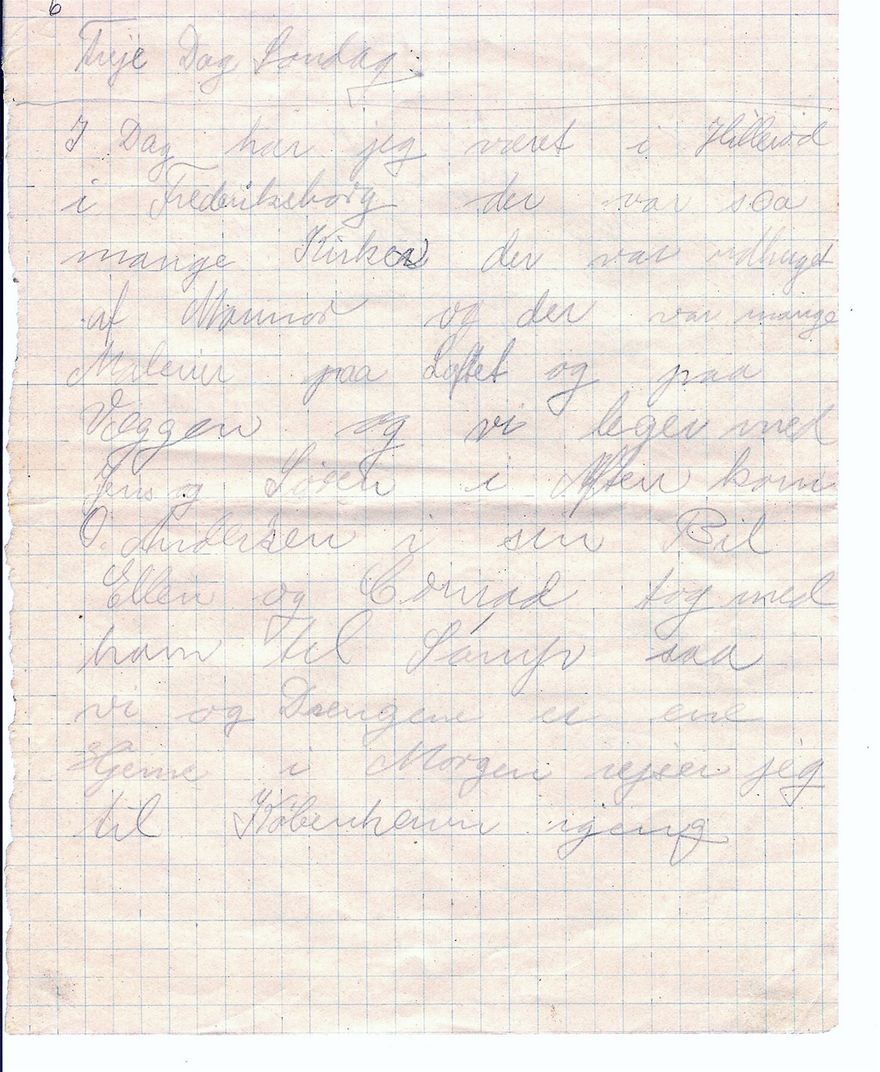 6
Treje Dag Søndag.
I Dag har jeg været i Hillerød
i Frederiksborg der var saa
mange Kirker der var udhuget
af Marmor og der var mange
Malerier paa Loftet og paa
Væggen og vi leger med
Jens og Sören i Aften kom
O. Andersen i sin Bil
Ellen og Conrad tog med
ham til saa
vi og Drengene er ene
Hjeme i Morgen rejser jeg
til København igeng